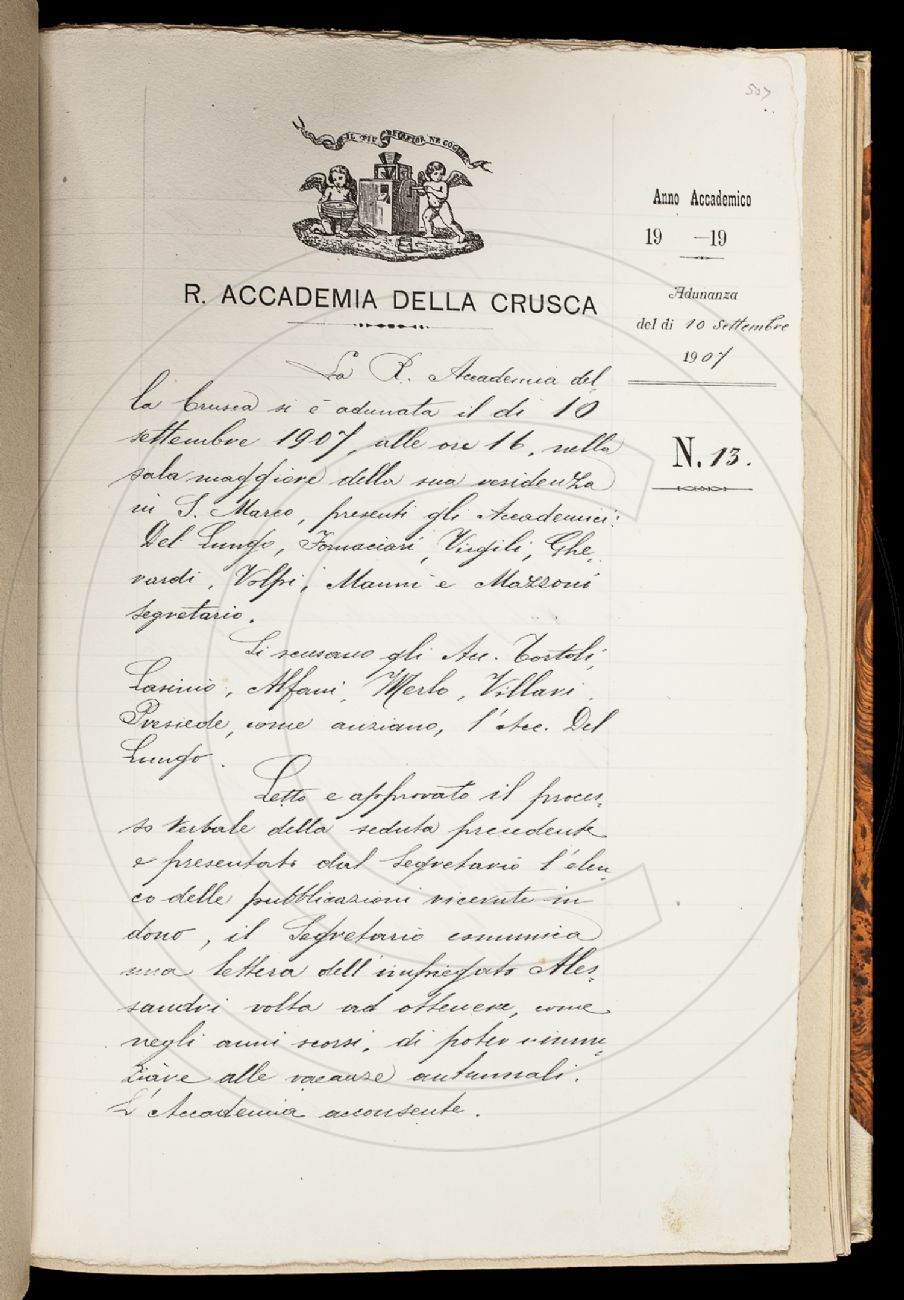 507
IL PIÙ BEL FIOR NE COGLIE
Anno Accademico
19 —19
Adunanza
del dì 10 Settembre
1907
N. 13.
R. ACCADEMIA DELLA CRUSCA
La R. Accademia del-
la Crusca si è adunata il dì 10
settembre 1907, alle ore 16, nella
sala maggiore della sua residenza
in S. Marco, presenti gli Accademici:
Del Lungo, Fornaciari, Virgili, Ghe-
rardi, Volpi, Manni e Mazzoni
segretario.
Si scusano gli Acc. Tortoli,
Lasinio, Alfani, Merlo, Villari.
Presiede, come anziano, l'Acc. Del
Lungo.
Letto e approvato il proces-
so verbale della seduta precedente
e presentato dal Segretario l'elen-
co delle pubblicazioni ricevute in
dono, il Segretario comunica
una lettera dell'impiegato Ales-
sandri volta ad ottenere, come
negli anni scorsi, di poter rinun-
ziare alle vacanze autunnali.
L'Accademia acconsente.